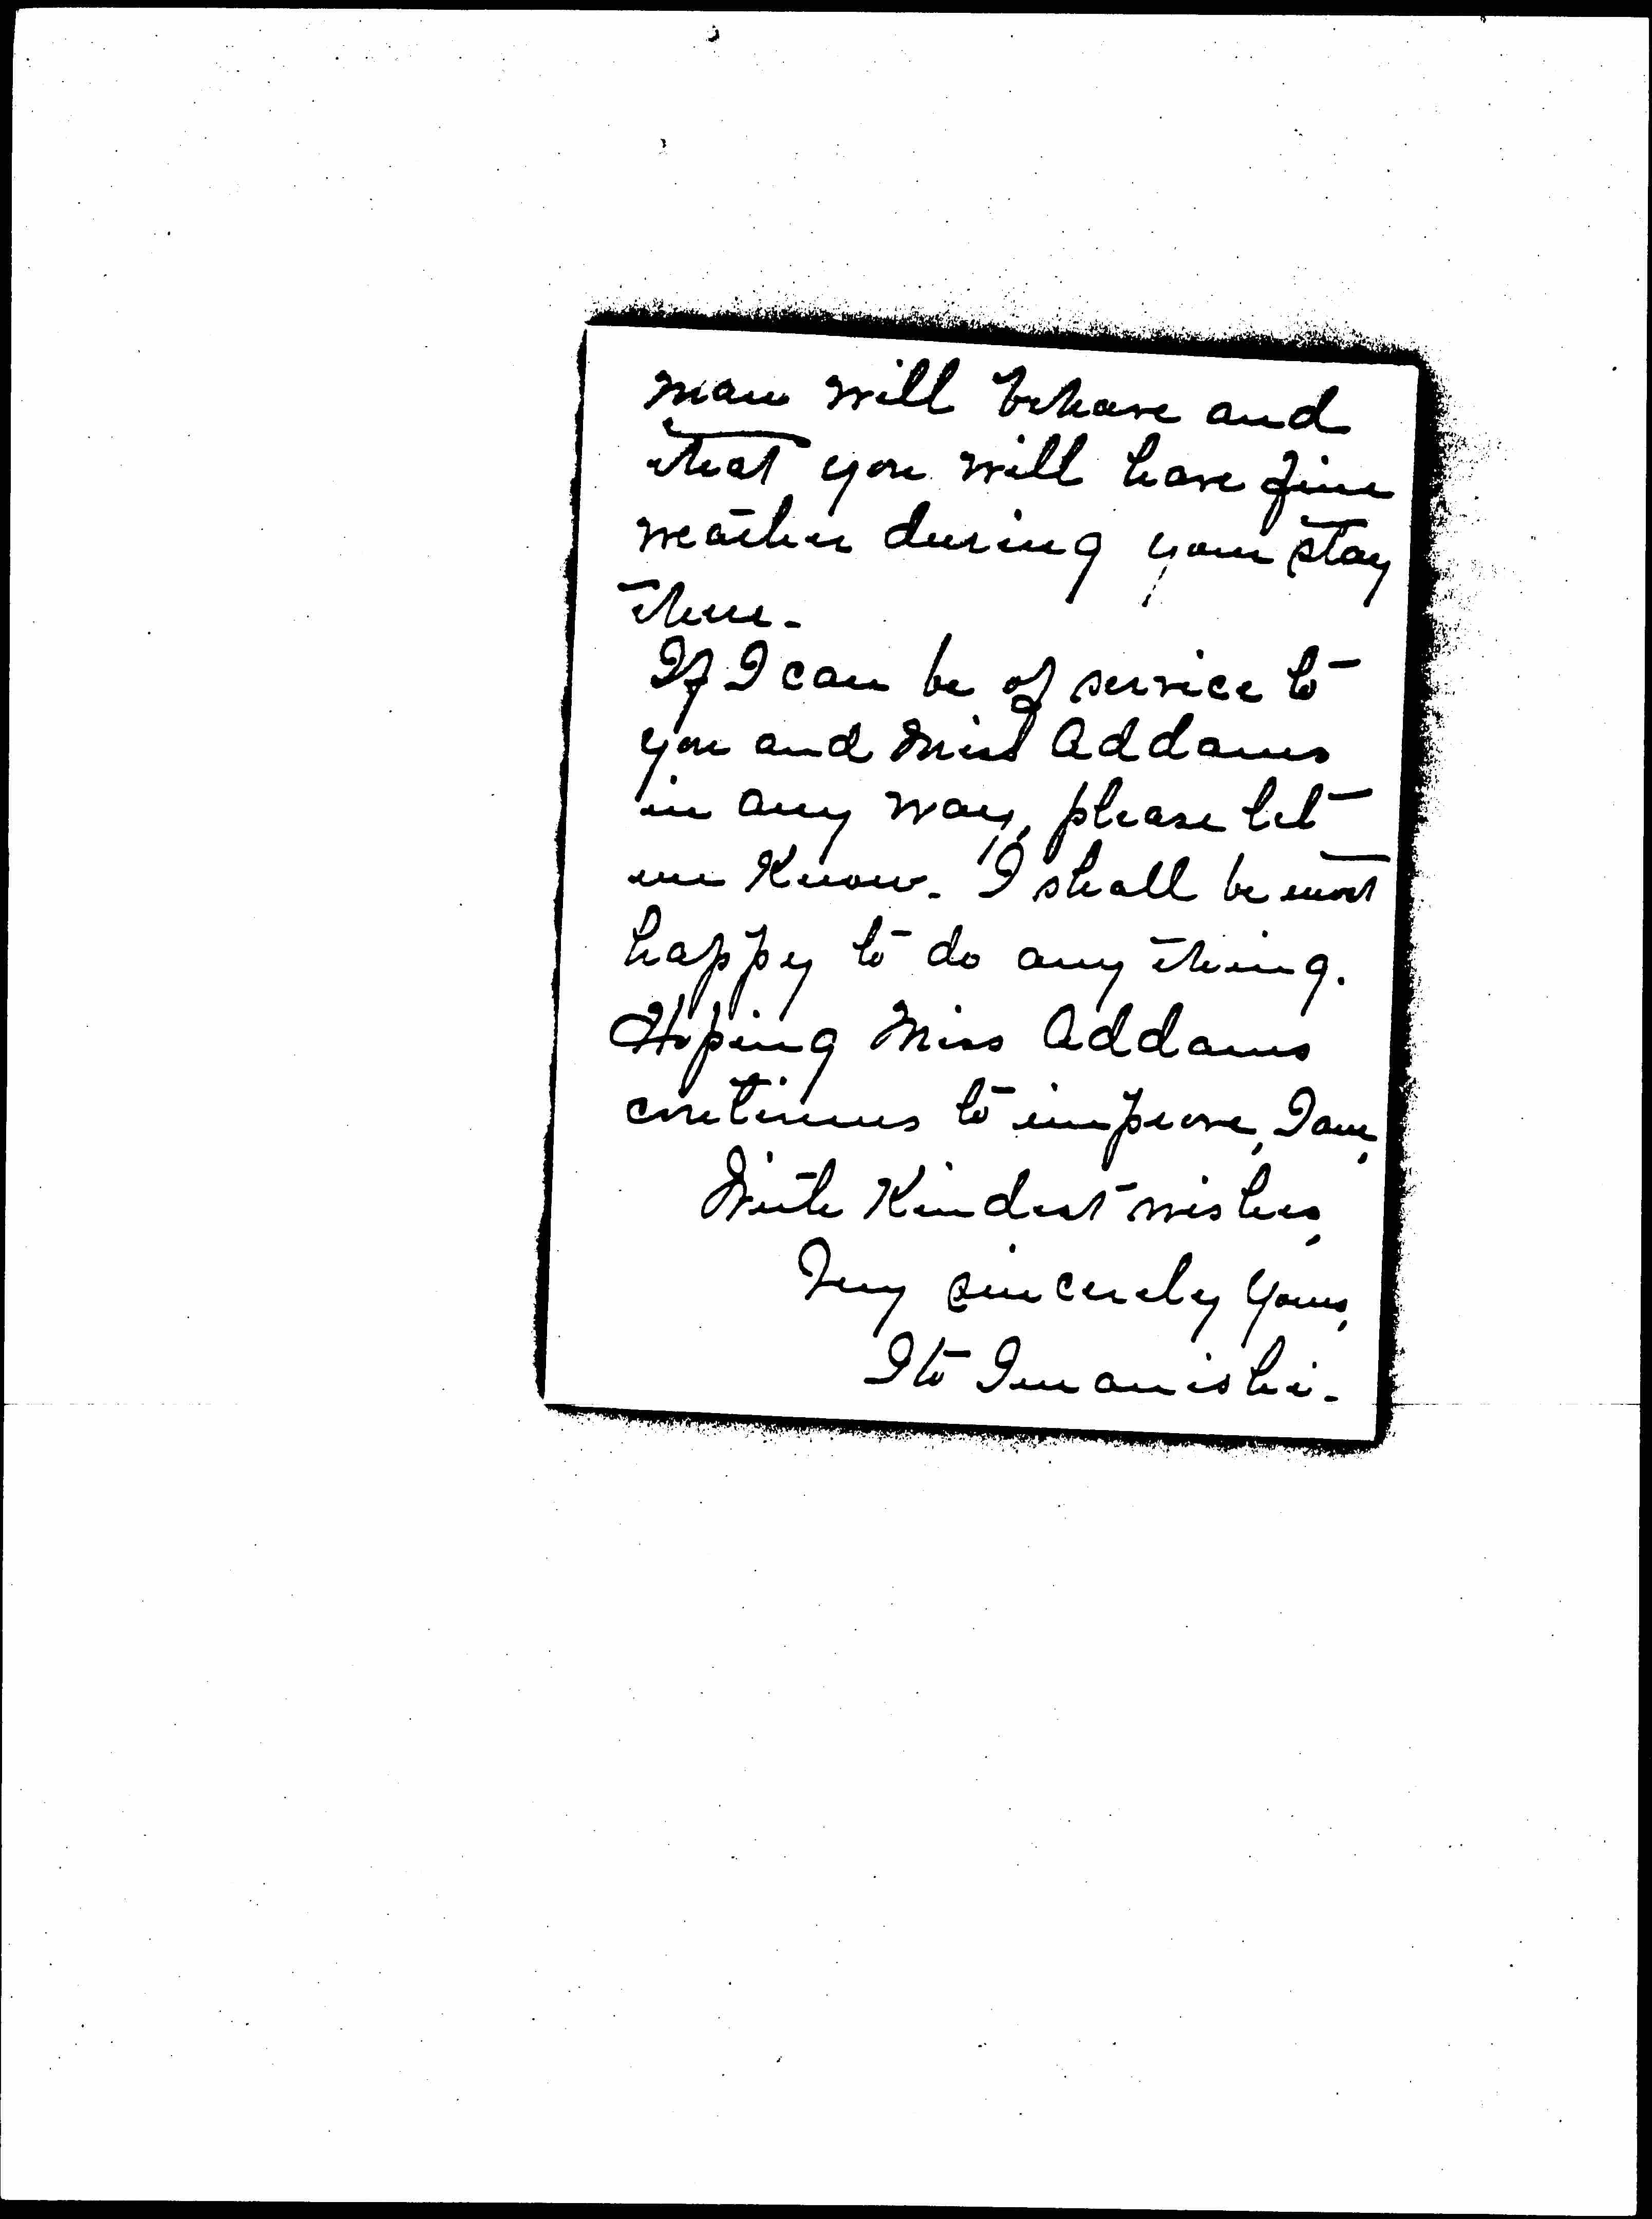 man will behave and
that you will have fine
weather during your stay
there.
If I can be of service to
you and Miss Addams
in any way, please let
me know. I shall be most
happy to do any thing.
Hoping Miss Addams
continues to improve, I am,
With Kindest wishes,
Very sincerely yours,
Ito Imanishi.